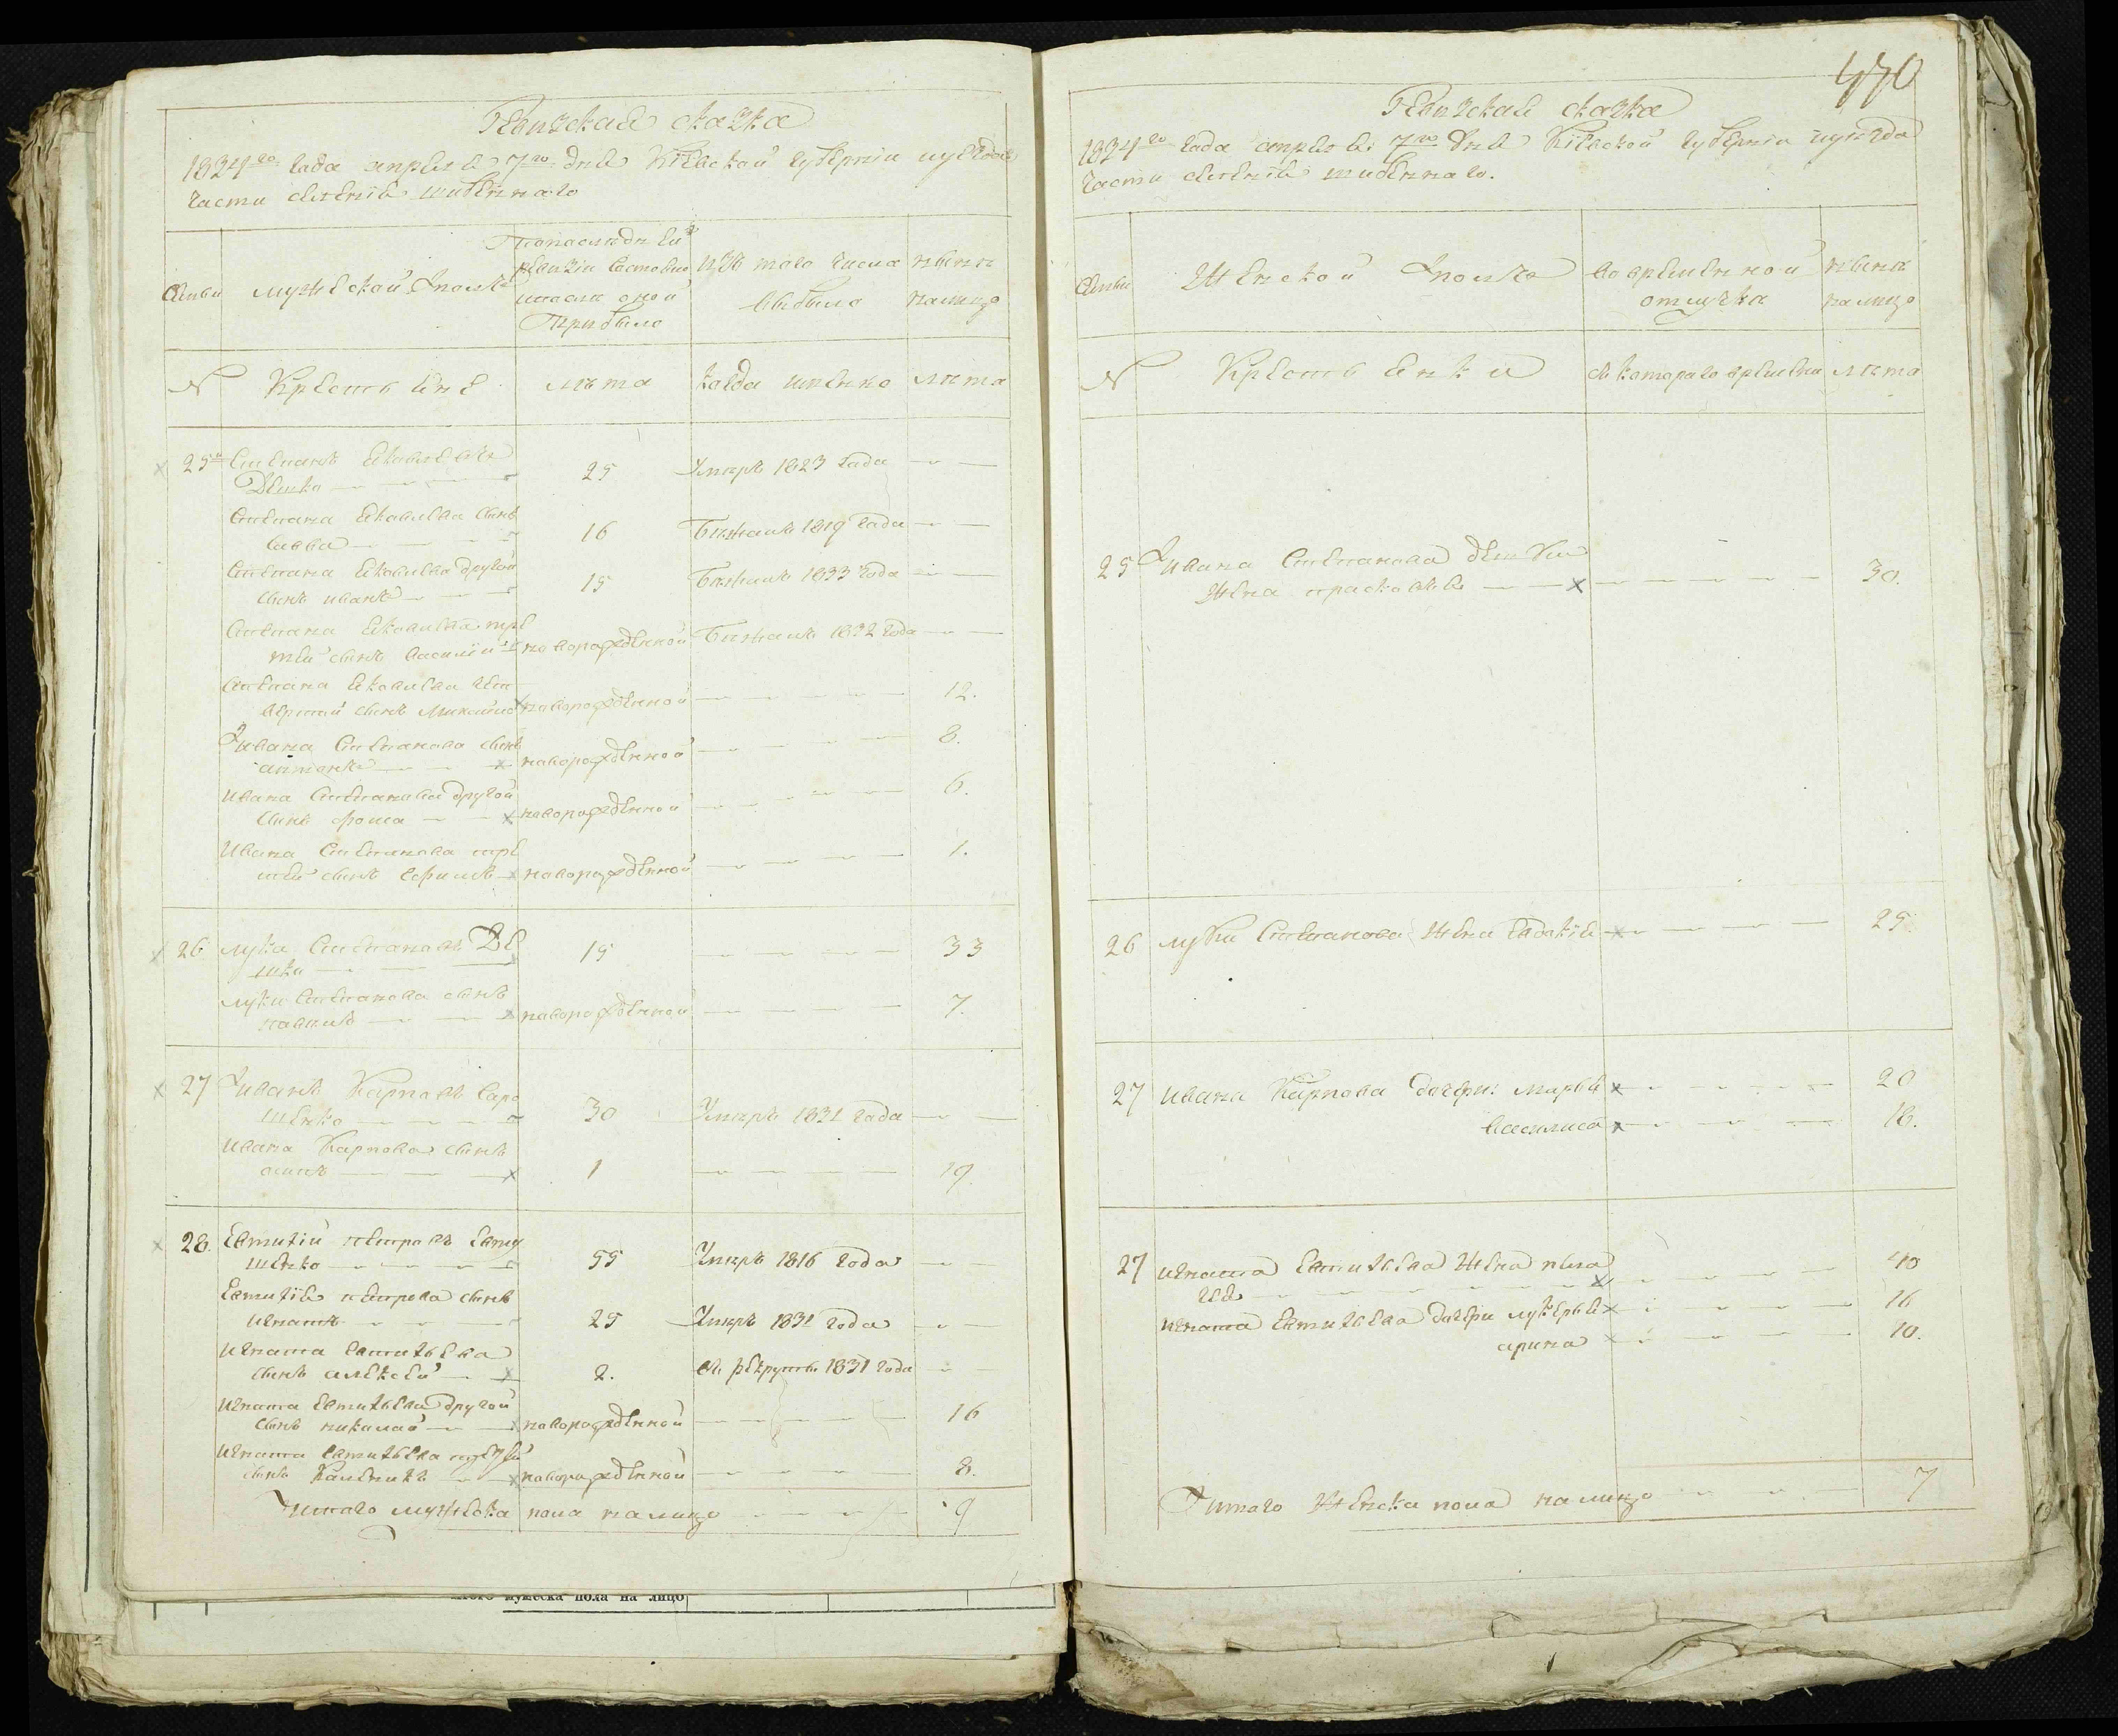 Ревизская сказка
1834го года апреля 7го дня Кіевской губерніи и уезда
части селенія
семьи
мужеской полъ
По последней
ревизіи состояло
и после оной
Прибыло
изъ того числа
выбыло
ныне
налицо
N
Крестьяне
лета
когда именно
лета
25й Степанъ Яковлевъ
Демко
25
Умеръ 1823 года
Степана Яковлева сынъ
савва
16
Бежалъ 1819 года
Степана Яковлева другой
сынъ иванъ
15
Бежалъ 1833 года
Степана Яковлева тре
тий сынъ василій
новорожденной
Бежалъ 1832 года
Степана Яковлева чет
вертый сынъ
новорожденной
12.
Ивана Степанова сынъ
антонъ
новорожденной
8.
Ивана Степанова другой
сынъ фома
новорожденной
6.
Ивана Степанова тре
тий сынъ
новорожденной
1.
26 лука Степановъ Де
мко
15
33
луки Степанова сынъ
павелъ
новорожденной
7.
27 Иванъ Карповъ
30
Умеръ 1831 года
Ивана Карпова сынъ
1
19.
28. Евтихій петровъ Евту
шенко
55
Умеръ 1816 года
Евтихія петрова сынъ
игнатъ
25
Умеръ 1831 года
игната евтихьева
сынъ алексей
2.
въ рекруты 1831 года
игната Евтихьева другой
сынъ николай
новорожденной
16
игната евтихьева третьий
сынъ Каленикъ
новорожденной
8.
Итого мужеска пола налицо
9
470
Ревизская сказка
1834го года апреля 7го дня Кіевской губерніи и уезда
части селенія
семьи
Женской полъ
во временной
отлучке
ныне
налицо
N
Крестьянки
съ котораго времени
лета
25 Ивана Степанова демки
жена прасковья
30.
26 луки Степанова жена Евдокія
25.
27 ивана Карпова дочери: марья
20
василиса
16.
27 игната Евтихьева жена
40
игната Евтихьева дочери лукерья
16
арина
10.
Итого Женска пола налицо
7
того мужеска пола на лицо